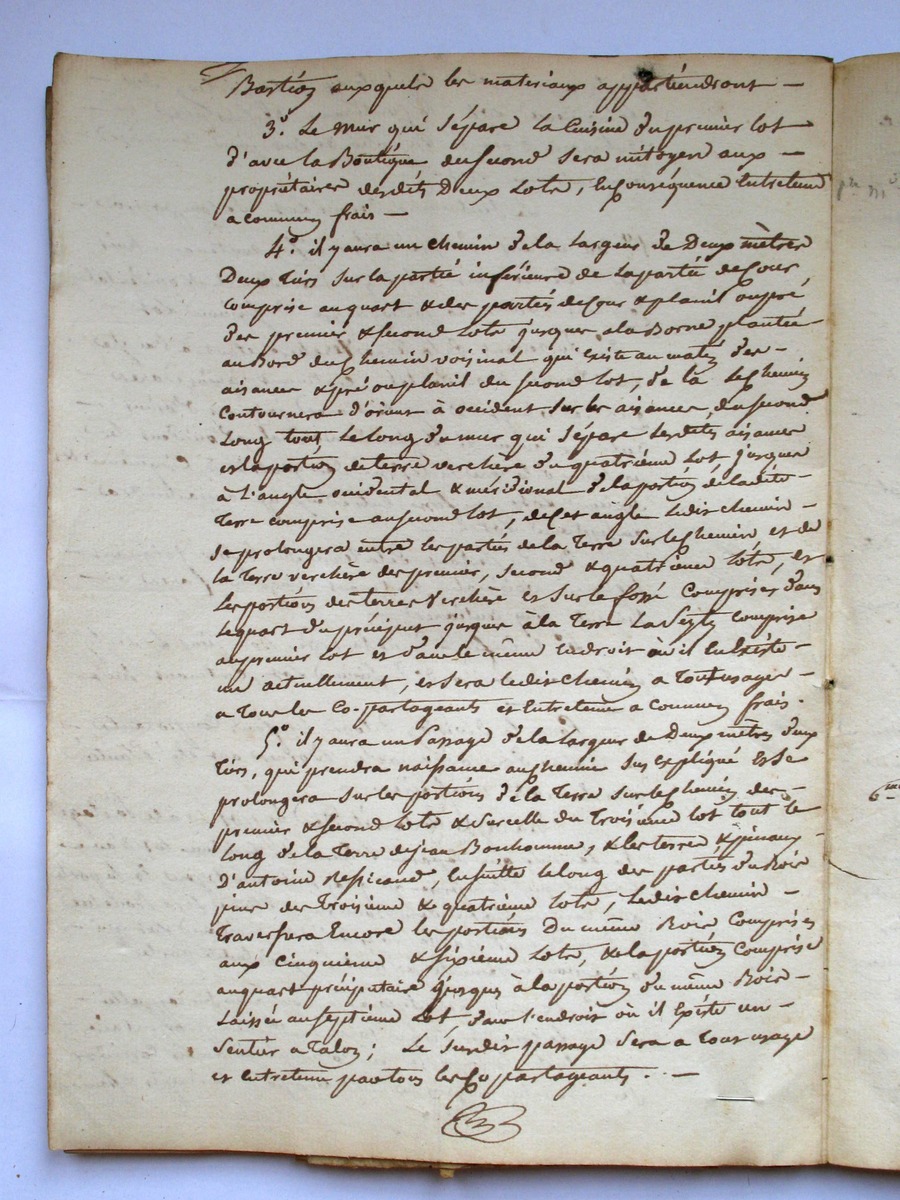 Bastien auxquels les materiaux appartiendront —
3.° Le mur qui sépare la Cuisine du premier lot
d'avec la Boutique du second sera mitoyen aux —
propriétaires desdits Deux Lots, en Conséquence Entretenu
a commun frais —
4.° il y aura un chemin de la largeur de Deux mètres
Deux Tiers sur la partie inférieure de la partie de Cour
comprise au quart & des parties de Cour & planil ou pré
des premier & second lots jusques a la Borne plantée
au Bord du Chemin voisinal qui Existe au matin des —
aisances & pré ou planil du second lot, de là le Chemin
Contournera d'orient à occident sur les aisances du second
Long tout Le long du mur qui sépare lesdites aisances
et la portion de terre verchère du quatrième lot jusques
à l'angle occidental & méridional de la portion de ladite
Terre comprise au second lot, de Cet angle ledit chemin —
se prolongera entre les parties de la Terre sur le Chemin, et de
la Terre verchère des premier, second & quatrième lots, et
Les portions des terres Verchère et sur le fossé Comprises dans
le quart du préciput jusques à la Terre comprise
au premier lot et dans le même Endroit où il En Existe —
un actuellement, et sera ledit chemin a Tout usage —
a Tous les Co-partageants et Entretenu a Commun frais.
5.° il y aura un Passage de la Largeur de Deux mètres deux
Tiers, qui prendra naissance au Chemin sus Expliqué Et se
prolongera sur les portions de la Terre sur le Chemin des —
premier & second lots & sur celle du Troisième lot tout le
long de la Terre de jean Bonhomme, & les terre, &
D'antoine, Ensuitte le long des parties du Bois
pins des Troisième & quatrième lots, Ledit chemin —
Traversera Encore les portions Du même Bois Comprises
aux Cinquième & sixième Lots, & la portion Comprise
au quart préciputaire jusques à la portion du même Bois —
Laissée au septième Lot, dans l'endroit où il Existe un —
Sentier a Talon; Le susdit passage sera a Tout usage
et Entretenu par tous les Co partageants. —
6.me